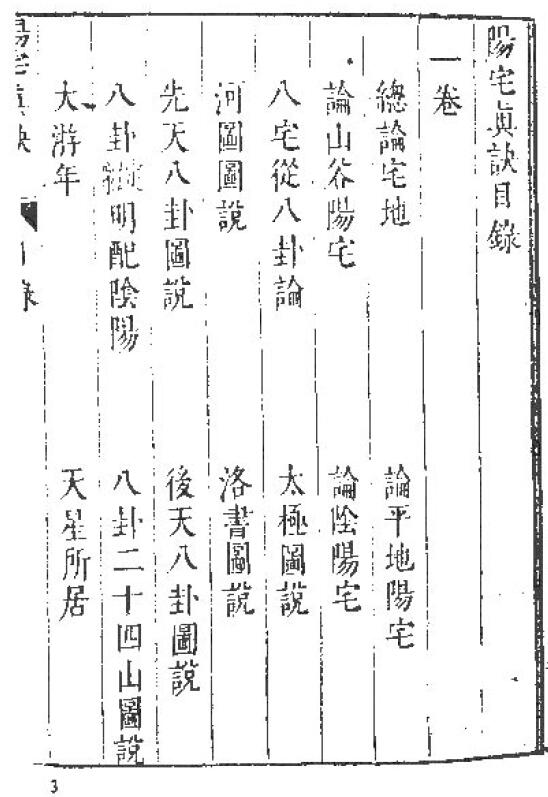 陽宅眞訣目錄
一卷
總論宅地 論平地陽宅
論山谷陽宅 論陰陽宅
八宅從八卦論 太極圖說
河圖圖說 洛書圖說
先天八卦圖說 後天八卦圖說
八卦 明配陰陽 八卦二十四山圖說
大游年 天星所居
3